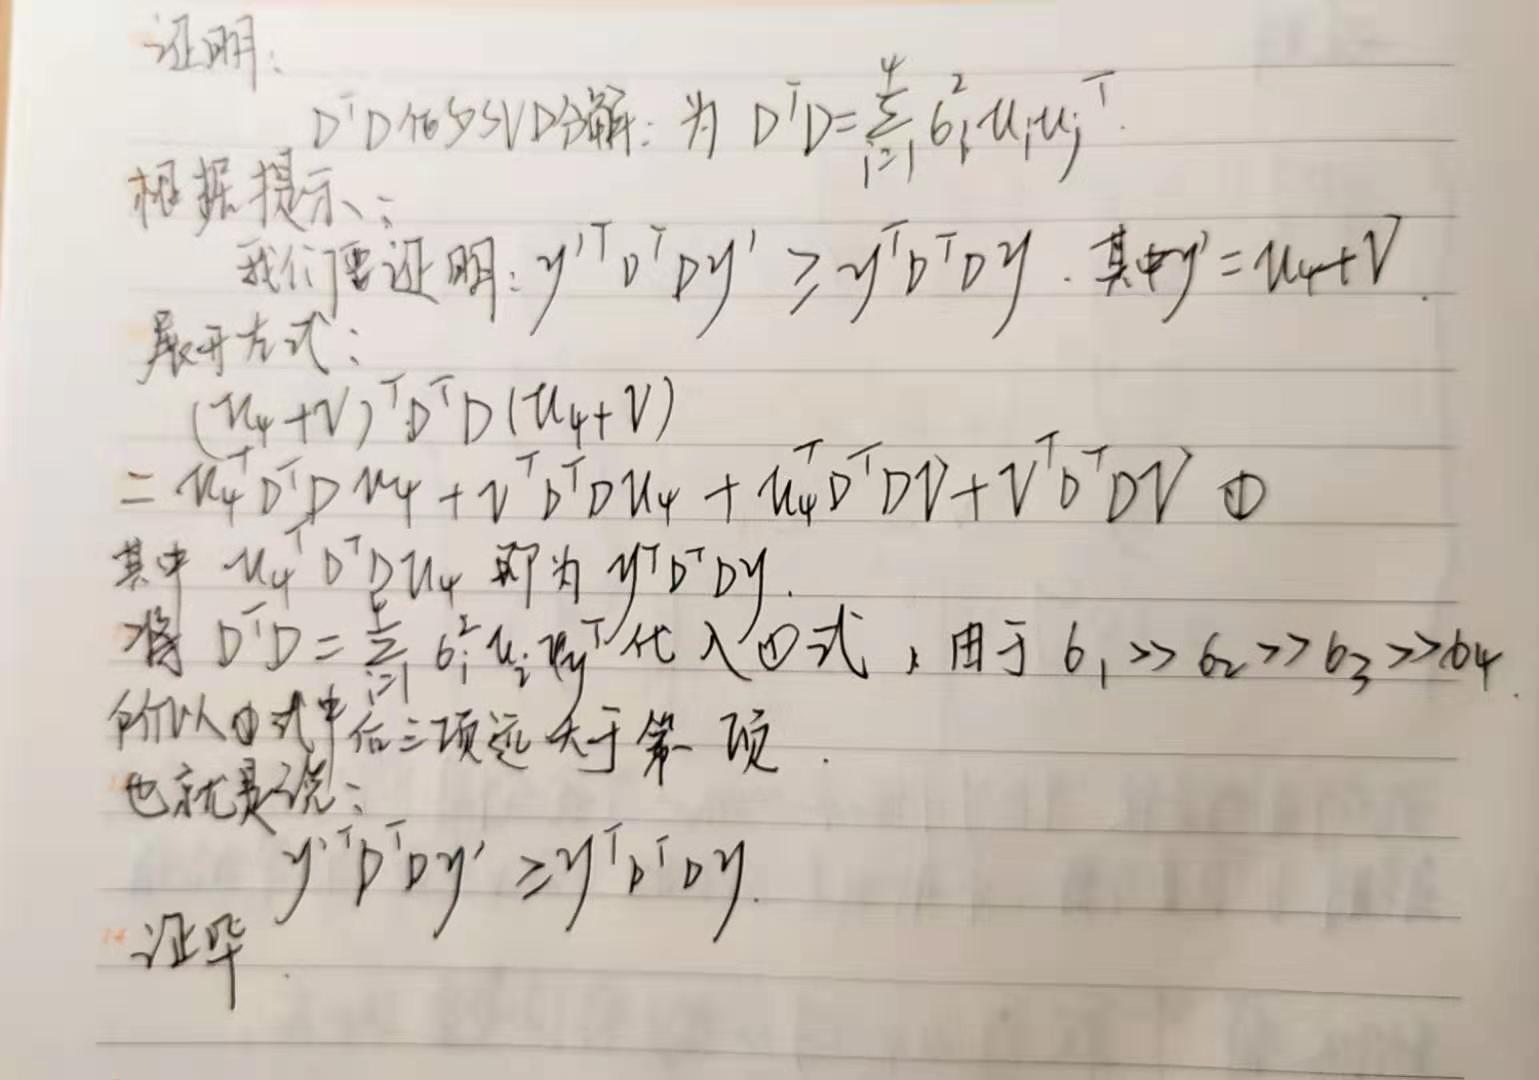 证明:
D^T D 的SVD分解: 为 D^T D = \sum_{i=1}^{4} 6_i^2 u_i u_j^T.
根据提示:
我们要证明: y'^T D^T D y' ≥ y^T D^T D y. 其中y' = u_4 + V.
展开方式:
(u_4 + V)^T D^T D (u_4 + V)
= u_4^T D^T D u_4 + V^T D^T D u_4 + u_4^T D^T D V + V^T D^T D V ①
其中 u_4^T D^T D u_4 即为 y^T D^T D y.
将 D^T D = \sum_{i=1}^{4} 6_i^2 u_i u_j^T 代入①式, 由于 6_1 >> 6_2 >> 6_3 >> 6_4.
所以①式中后三项远大于第一项.
也就是说:
y'^T D^T D y' ≥ y^T D^T D y.
证毕.